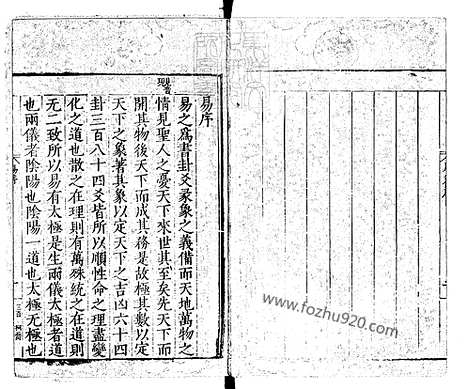 易序
易之爲書卦爻彖象之義備而天地萬物之
情見聖人之憂天下來世其至矣先天下而
開其物後天下而成其務是故極其數以定
天下之象著其象以定天下之吉凶六十四
卦三百八十四爻皆所以順性命之理盡變
化之道也散之在理則有萬殊統之在道則
无二致所以易有太極是生兩儀太極者道
也兩儀者陰陽也陰陽一道也太極无極也
www.fozhu920.com